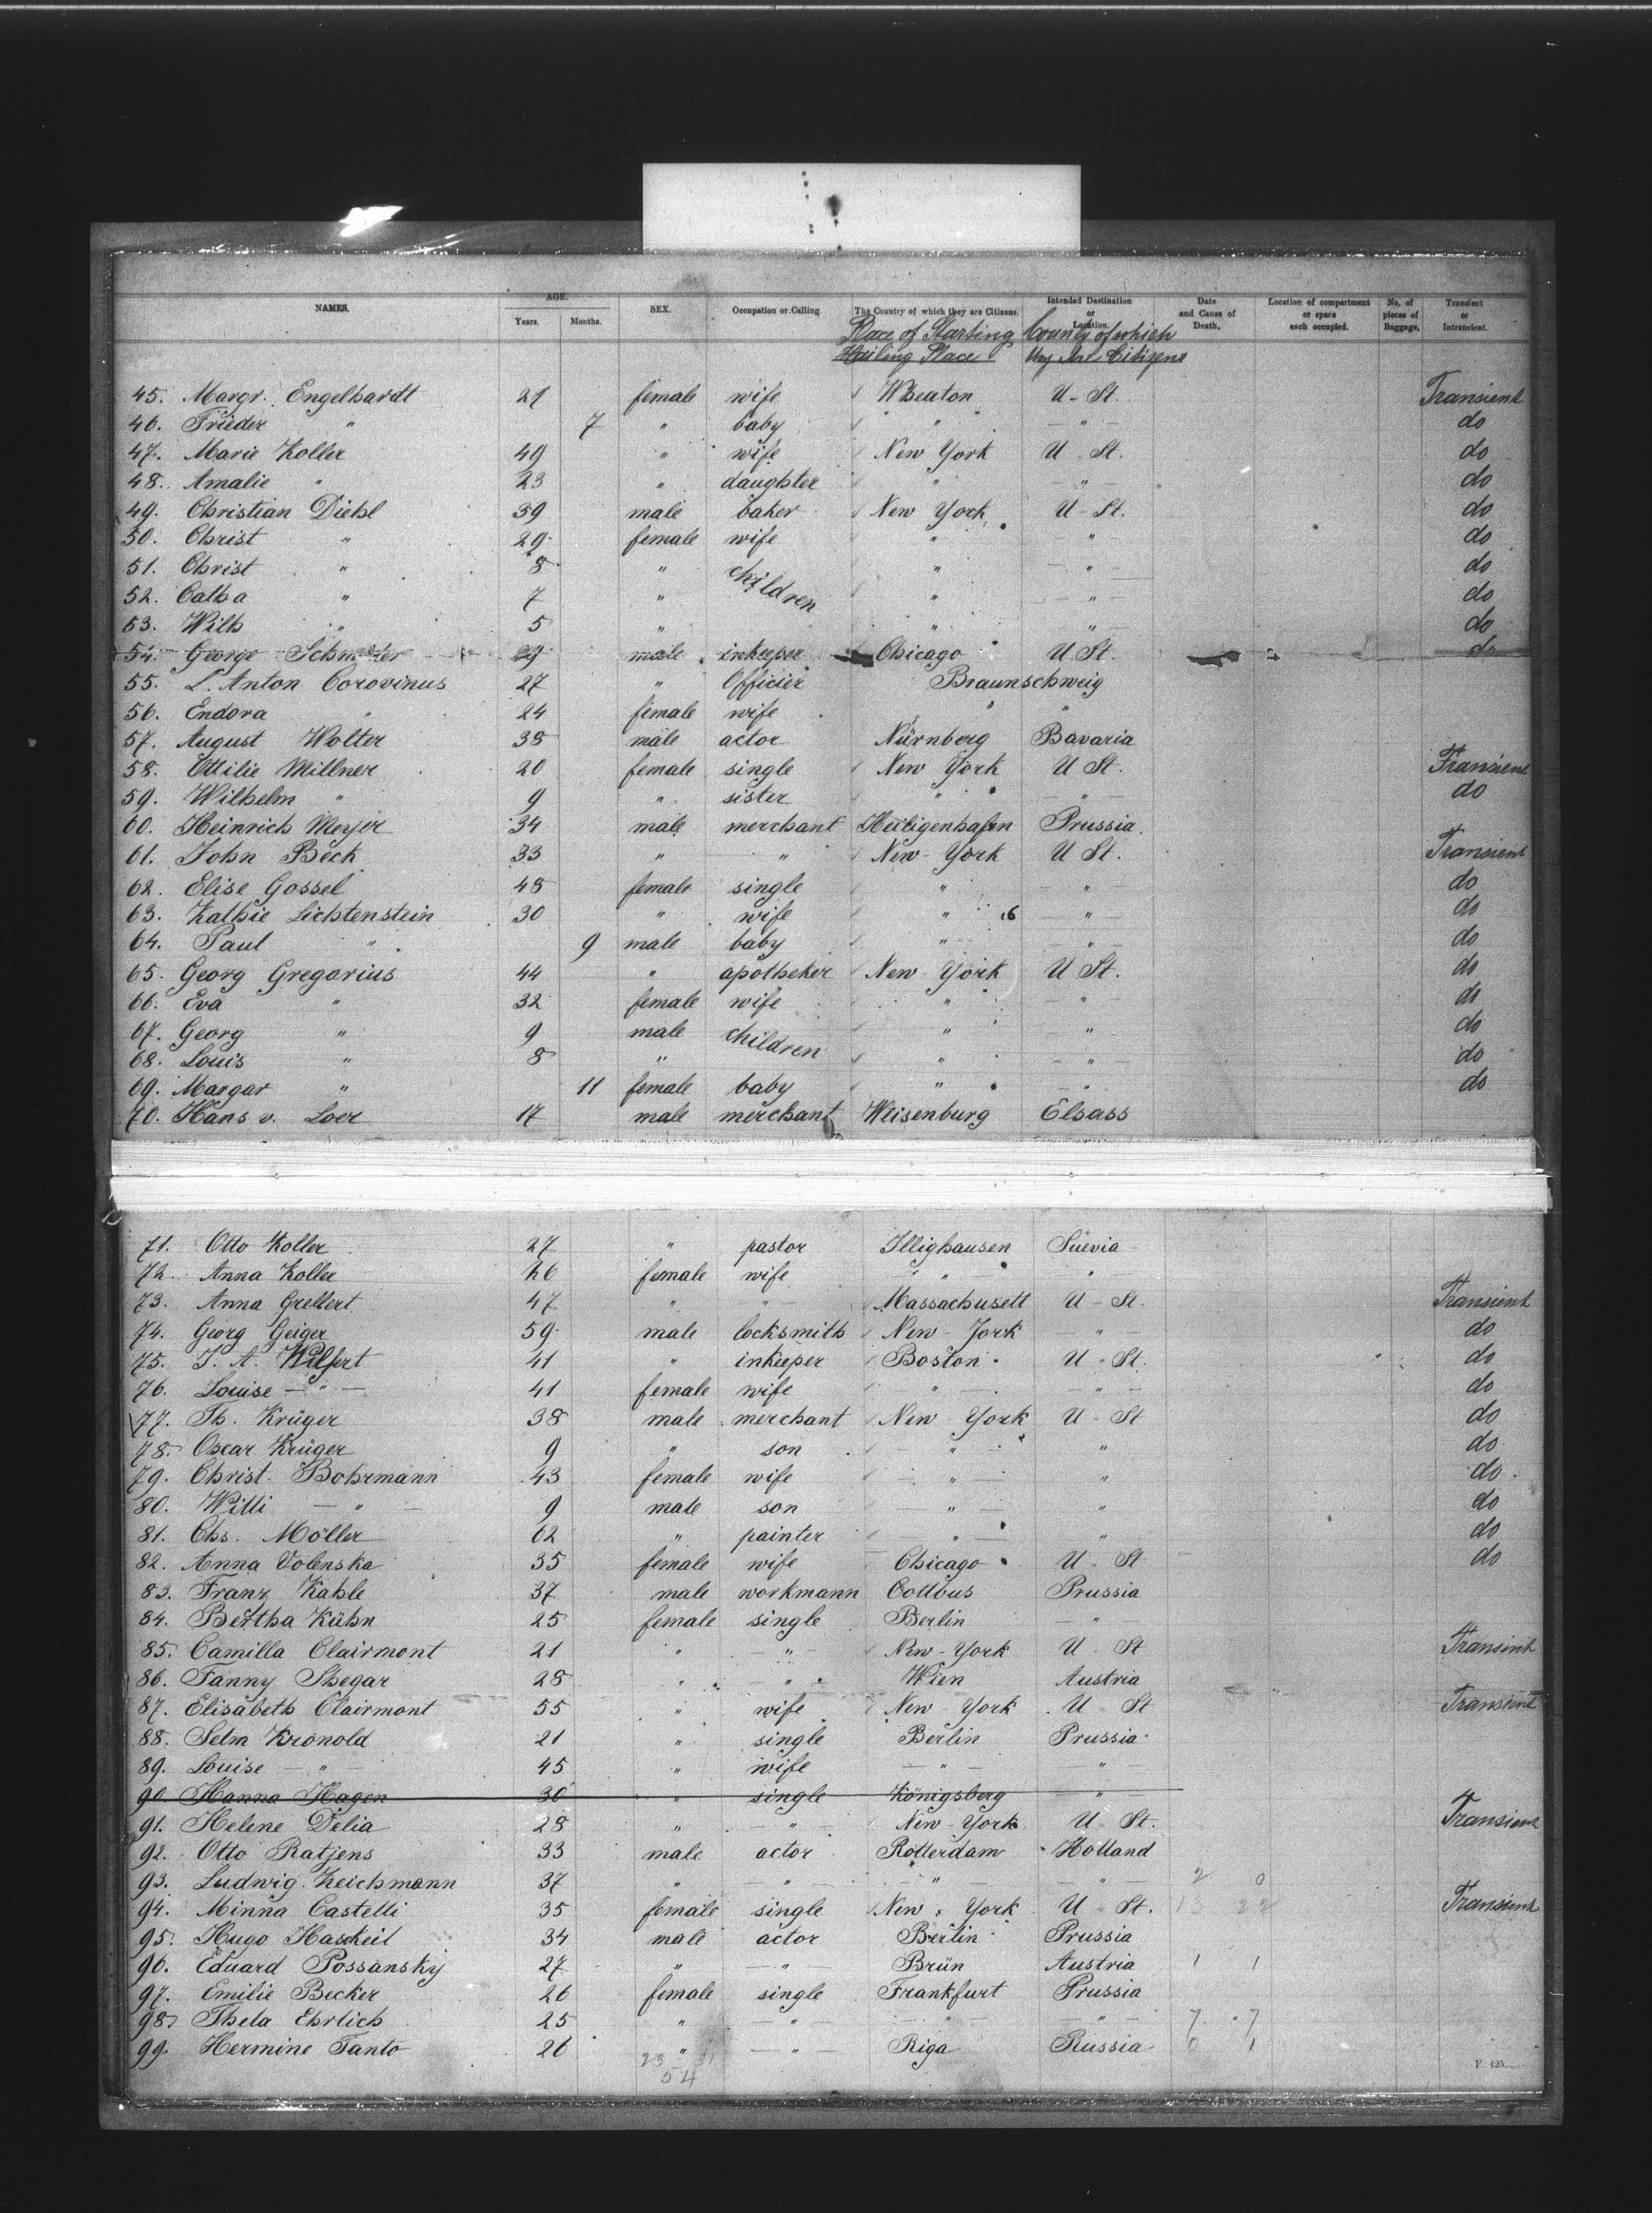 NAMES. AGE. SEX. Occupation or Calling The Country of which they are Citizens. Intended Destination or Location. Date and Cause of Death. Location of compartment or space each occupied. No. of pieces of Baggage. Transient or Intransient.
Years. Months.
Place of Starting County of which
Hailing Place they are Citizens
45. Margr. Engelhardt 21 female wife Wheaton U-St. Transient
46. Frieder " 7 " baby " " do
47. Marie Koller 49 " wife New York U. St. do
48. Amalie " 23 " daughter " " do
49. Christian Diehl 39 male baker New York U-St. do
50. Christ " 29 female wife " " do
51. Christ " 8 " children " " do
52. Catha " 7 " " " do
53. Wilh " 5 " " " do
54. George male inkeeper Chicago U.St. do
55. L. Anton Corovinus 27 " Officier Braunschweig
56. Endora " 24 female wife " "
57. August Wolter 38 male actor Nürnberg Bavaria
58. Ottilie Millner 20 female single New York U St. Transient
59. Wilhelm " 9 " sister " " do
60. Heinrich Meyer 34 male merchant Heiligenhafen Prussia
61. John Beck 33 " " New-York U St. Transient
62. Elise Gossel 48 female single " " do
63. Kathie Lichtenstein 30 " wife " " do
64. Paul " 9 male baby " " do
65. Georg Gregorius 44 " apotheker New-York U St. do
66. Eva " 32 female wife " " do
67. Georg " 9 male children " " do
68. Louis " 8 " " " do
69. Margar " 11 female baby " " do
70. Hans v. Loer 17 male merchant Weisenburg Elsass
71. Otto Koller 27 " pastor Illighausen Suevia
72. Anna Koller 26 female wife " "
73. Anna Grellert 47 " " Massachusett U-St. Transient
74. Georg Geiger 59 male locksmith New-York " do
75. J. A. Wilfert 41 " inkeeper Boston U-St. do
76. Louise " 41 female wife " " do
77. Th. Krüger 38 male merchant New-York U-St do
78. Oscar Krüger 9 " son " " do
79. Christ. Bohrmann 43 female wife " " do
80. Willi " 9 male son " " do
81. Chs. Möller 62 " painter " " do
82. Anna Volenska 35 female wife Chicago U-St do
83. Franz Kahle 37 male workmann Cottbus Prussia
84. Bertha Kühn 25 female single Berlin "
85. Camilla Clairmont 21 " " New-York U-St Transient
86. Fanny Shegar 28 " " Wien Austria
87. Elisabeth Clairmont 55 " wife New-York U St Transient
88. Selm Kronold 21 " single Berlin Prussia
89. Louise " 45 " wife " "
90 Hanna Hagen 30 " single Königsberg "
91. Helene Delia 28 " " New-York U St. Transient
92. Otto Ratjens 33 male actor Rotterdam Holland
93. Ludwig Zeichmann 37 " " " " 2 0
94. Minna Castelli 35 female single New York U-St. 13 22 Transient
95. Hugo Haskeil 34 male actor Berlin Prussia
96. Eduard Possansky 27 " " Brün Austria 1 1
97. Emilie Becker 26 female single Frankfurt Prussia
98. Thela Ehrlich 25 " " " " 7 7
99. Hermine Tanto 26 " " Riga Russia 6 1
23 31
54
F. 425.